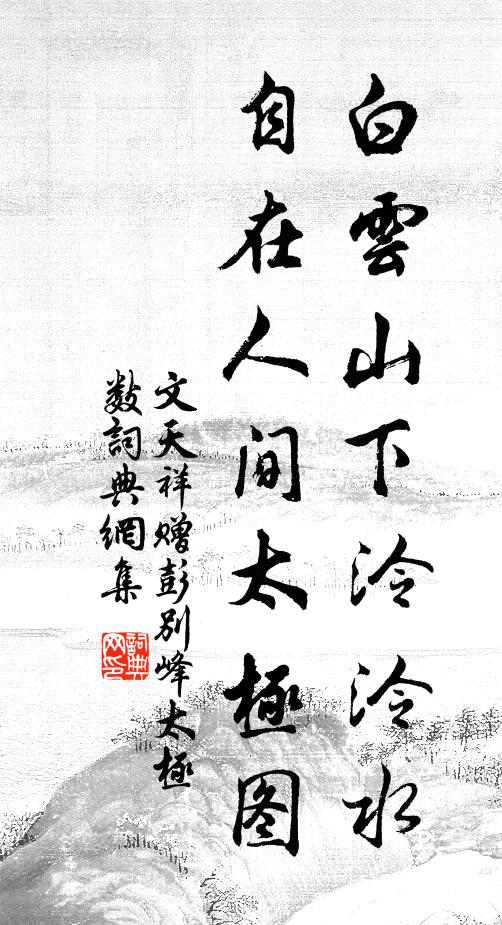 白雲山下泠泠水
自在人间太極图
文天祥贈彭别峰太極
数詞典網集
詞典网印